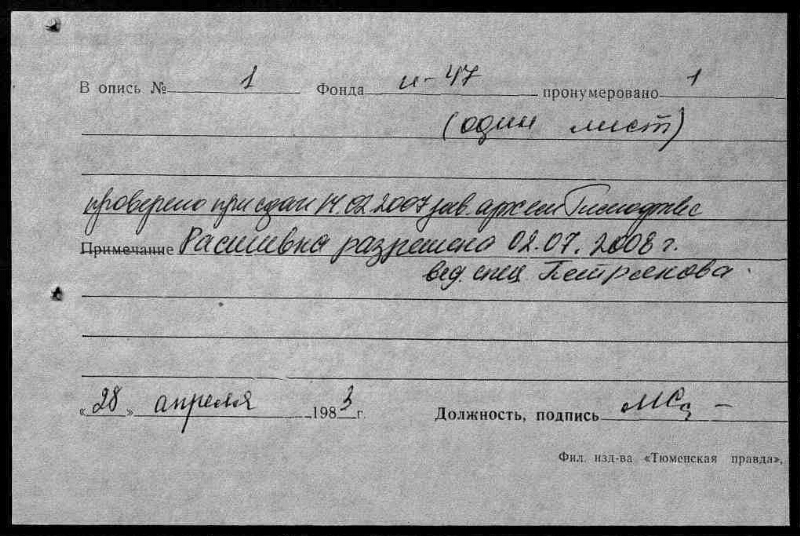 В опись № 1 Фонда и-47 пронумеровано 1
(один лист)
проверено при сдаче 14.02.2007 зав. архивом
Примечание Расшивка разрешена 02.07.2008 г.
вед. спец. Петрякова.
«28» апреля 1983 г. Должность, подпись
Фил. изд-ва «Тюменская правда».